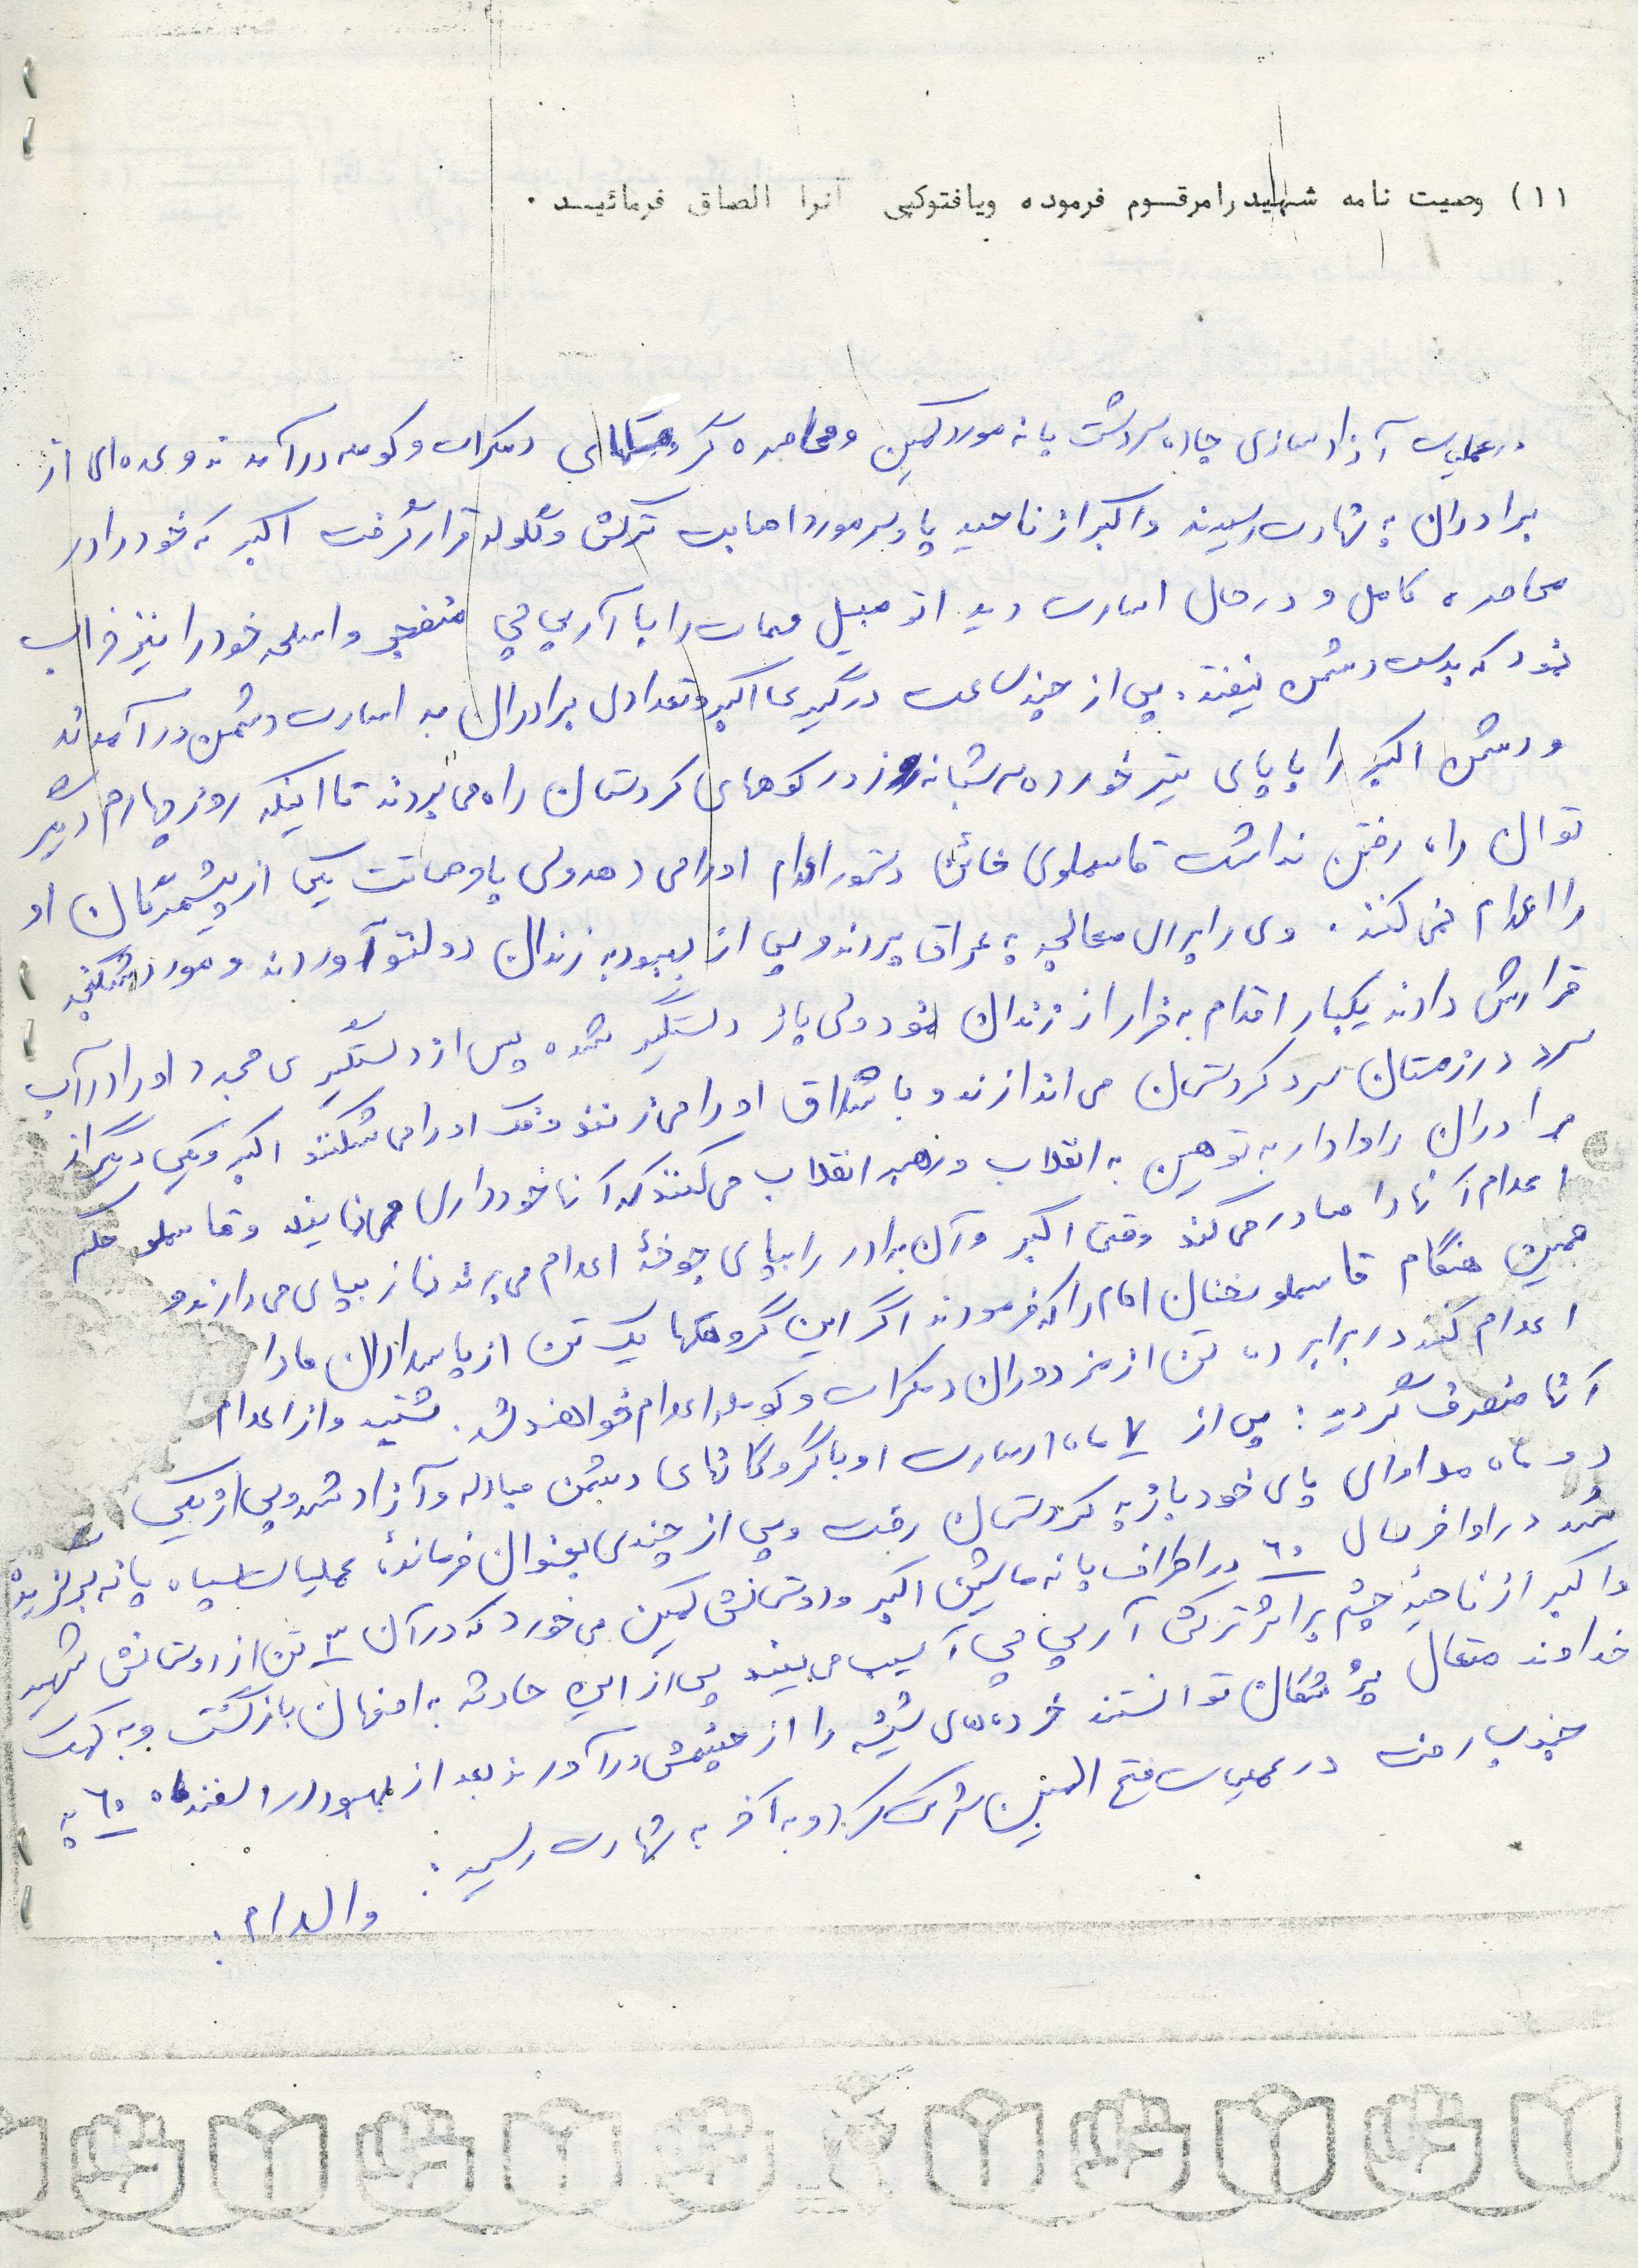 ۱۱) وصیت نامه شهید را مرقسوم فرموده ویافتوکپی آنرا الصاق فرمائیسد .
در عملیات آزادسازی جاده سردشت بانه مورد کمین و محاصره گروهکهای دمکرات و کومله درآمدند و عده ای از
برادران به شهادت رسیدند و اکبر از ناحیه پا و سر مورد اصابت ترکش و گلوله قرار گرفت اکبر که خود را در
محاصره کامل و در حال اسارت دید اتومبیل مهمات را با آرپی جی منفجر و اسلحه خود را نیز خراب
نمود که بدست دشمن نیفتد. پس از چند ساعت درگیری اکبر و تعدادی برادران به اسارت دشمن درآمدند
و دشمن اکبر را با پای تیر خورده سه شبانه روز در کوههای کردستان راه می بردند تا اینکه روز چهارم دیگر
توان راه رفتن نداشت قاسملوی خائن دستور اعدام او را می دهد ولی با وساطت یکی از پیشمرگان او
را اعدام نمی کنند. وی را برای معالجه به عراق بردند و پس از بهبود به زندان دولتو آوردند و مورد شکنجه
قرارش دادند یکبار اقدام به فرار از زندان نمود ولی باز دستگیر شده پس از دستگیری مجدد او را در آب
سرد در زمستان سرد کردستان می اندازند و با شلاق او را می زنند و فک او را می شکنند اکبر و یکی دیگر از
برادران را وادار به توهین به انقلاب و رهبر انقلاب می کنند که آنها خودداری می نمایند و قاسملو حکم
اعدام آنها را صادر می کند وقتی اکبر و آن برادر را بپای جوخهٔ اعدام می برند نماز بپای می دارند و
همین هنگام قاسملو سخنان امام را که فرمودند اگر این گروهکها یک تن از پاسداران ما را
اعدام کنند در برابر ده تن از مزدوران دمکرات و کومله اعدام خواهند شد. شنید و از اعدام
آنها منصرف گردید : پس از ۷ ماه اسارت او با گروگانهای دشمن مبادله و آزاد شد و پس از یکی
دو ماه مداوای پای خود باز به کردستان رفت و پس از چندی بعنوان فرماندهٔ عملیات سپاه بانه برگزیده
شد در اواخر سال ۶۰ در اطراف بانه ماشین اکبر و دوستانش کمین می خورد که در آن ۳ تن از دوستانش شهید
و اکبر از ناحیهٔ چشم بر اثر ترکش آرپی جی آسیب می بیند پس از این حادثه به اصفهان بازگشت و به کمک
خداوند متعال پزشکان توانستند خرده های شیشه را از چشمش درآورند بعد از بهبود در اسفند ماه ۶۰ به
جنوب رفت در عملیات فتح المبین شرکت کرد و به آخر به شهادت رسید.
والسلام :